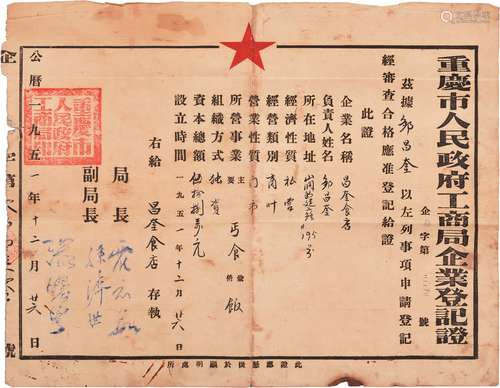 重慶市人民政府工商局企業登記證
企字第 號
茲據 鄒昌奎 以左列事項申請登記
經審查合格應准登記給證
此證
企業名稱 昌奎食店
負責人姓名 鄒昌奎
所在地址
經濟性質 私營
經營類別 商叶
營業性質 門市
所營事業 主要 丐食 兼營 飯
組織方式 独資
資本總額 伍拾捌萬元
設立時間 一九五一年十二月廿六日
右給 昌奎食店 存執
局長
副局長
公曆一九五一年十二月廿六日
重慶市人民政府工商局印
企 字第 號
此證應懸掛於顯明處所